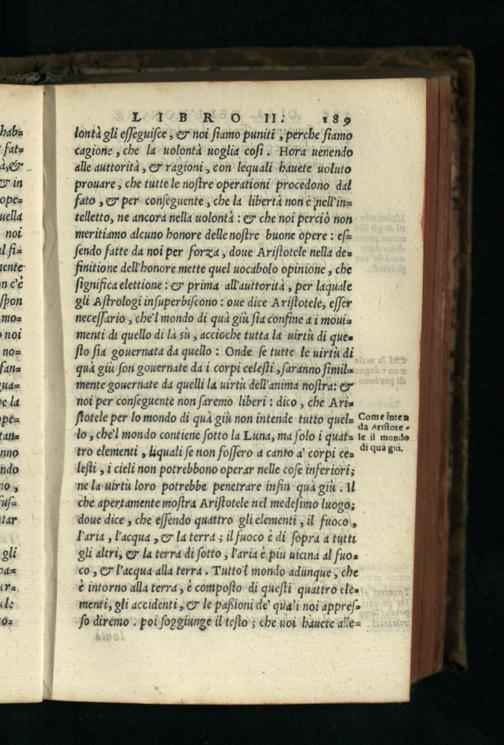 LIBRO II. 189
lontà gli esseguisce, & noi siamo puniti, perche siamo
cagione, che la uolontà uoglia cosi. Hora uenendo
alle auttorità, & ragioni, con lequali hauete uoluto
prouare, che tutte le nostre operationi procedono dal
fato, & per conseguente, che la libertà non è nell'in=
telletto, ne ancora nella uolontà: & che noi perciò non
meritiamo alcuno honore delle nostre buone opere: es=
sendo fatte da noi per forza, doue Aristotele nella de=
finitione dell'honore mette quel uocabolo opinione, che
significa elettione: & prima all'auttorità, per laquale
gli Astrologi insuperbiscono: oue dice Aristotele, esser
necessario, che'l mondo di quà giù sia confine a i moui=
menti di quello di là sù, accioche tutta la uirtù di que=
sto sia gouernata da quello: Onde se tutte le uirtù di
quà giù son gouernate da i corpi celesti, saranno simil=
mente gouernate da quelli la uirtù dell'anima nostra: &
noi per conseguente non saremo liberi: dico, che Ari=
stotele per lo mondo di quà giù non intende tutto quel=
lo, che'l mondo contiene sotto la Luna, ma solo i quat=
tro elementi, liquali se non fossero a canto a' corpi ce=
lesti, i cieli non potrebbono operar nelle cose inferiori;
ne la uirtù loro potrebbe penetrare infin quà giù. Il
che apertamente mostra Aristotele nel medesimo luogo;
doue dice, che essendo quattro gli elementi, il fuoco,
l'aria, l'acqua, & la terra; il fuoco è di sopra a tutti
gli altri, & la terra di sotto, l'aria è piu uicina al fuo=
co, & l'acqua alla terra. Tutto'l mondo adunque, che
è intorno alla terra, è composto di questi quattro ele=
menti, gli accidenti, & le passioni de' quali noi appres=
so diremo. poi soggiunge il testo; che uoi hauete alle=
Come inten
da Aristote=
le il mondo
di quà giù.